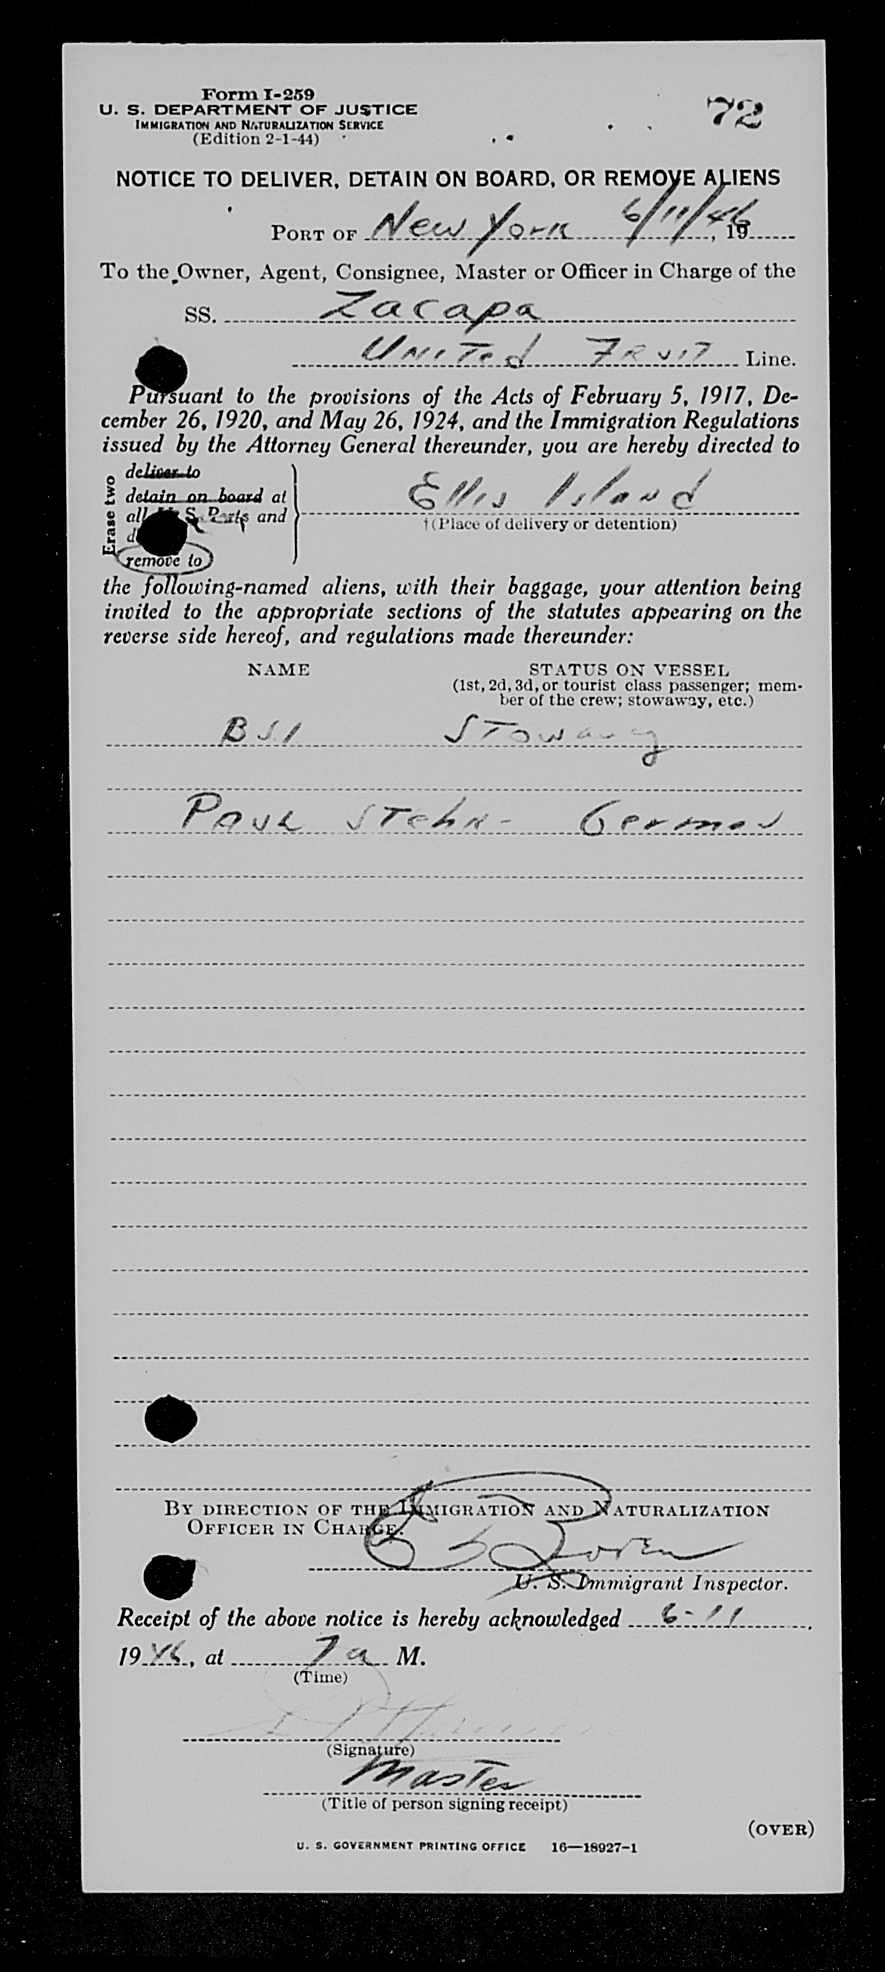 Form I-259
U. S. DEPARTMENT OF JUSTICE
IMMIGRATION AND NATURALIZATION SERVICE
(Edition 2-1-44)
72
NOTICE TO DELIVER, DETAIN ON BOARD, OR REMOVE ALIENS
PORT OF New York 6/11/46, 19
To the Owner, Agent, Consignee, Master or Officer in Charge of the
SS. Zacapa
United Fruit Line.
Pursuant to the provisions of the Acts of February 5, 1917, De-
cember 26, 1920, and May 26, 1924, and the Immigration Regulations
issued by the Attorney General thereunder, you are hereby directed to
Erase two
deliver to
detain on board at
all U. S. Ports and
remove to
Ellis Island
†(Place of delivery or detention)
the following-named aliens, with their baggage, your attention being
invited to the appropriate sections of the statutes appearing on the
reverse side hereof, and regulations made thereunder:
NAME STATUS ON VESSEL
(1st, 2d, 3d, or tourist class passenger; mem-
ber of the crew; stowaway, etc.)
BSI Stowaway
Paul Stehr - German
BY DIRECTION OF THE IMMIGRATION AND NATURALIZATION
OFFICER IN CHARGE.
U. S. Immigrant Inspector.
Receipt of the above notice is hereby acknowledged 6-11,
1946, at 7 a M.
(Time)
(Signature)
Master
(Title of person signing receipt)
(OVER)
U. S. GOVERNMENT PRINTING OFFICE 16—18927-1